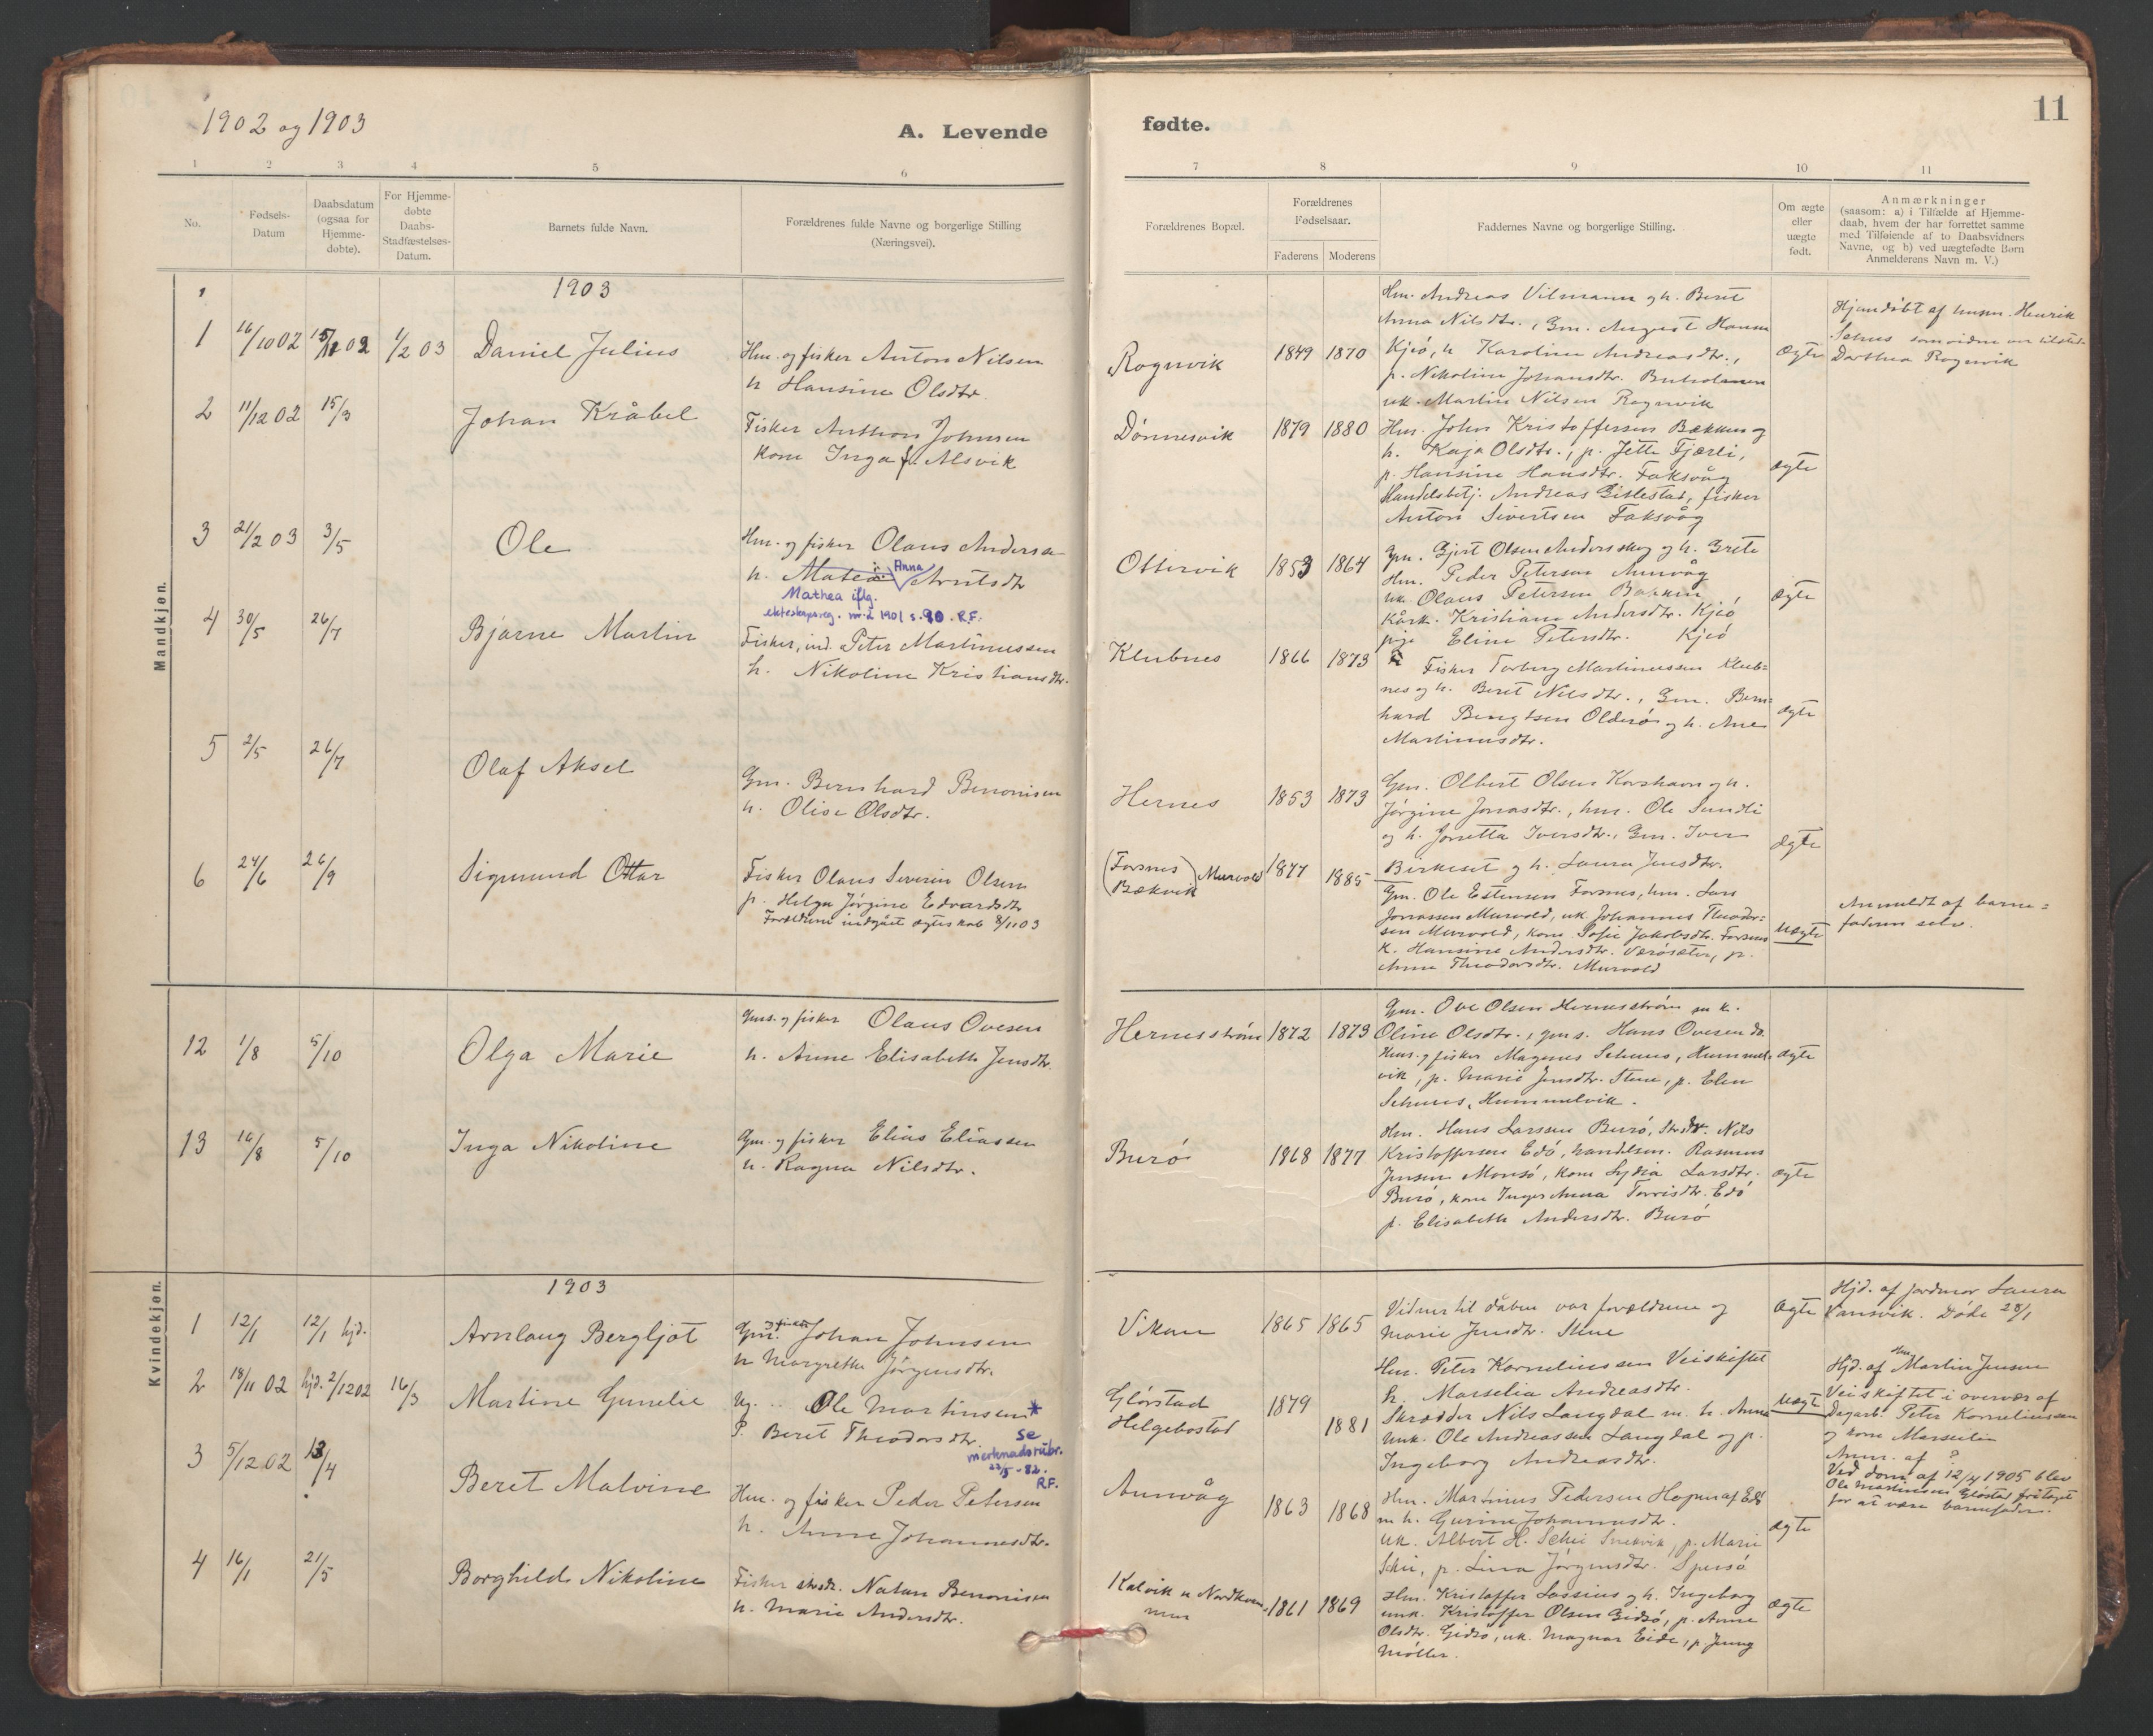 1902 og 1903
A. Levende
fødte.
11
1 2 3 4 5 6 7 8 9 10 11
No.
Fødsels-
Datum
Daabsdatum
(ogsaa for
Hjemme-
døbte).
For Hjemme-
døbte
Daabs-
Stadfæstelses-
Datum.
Barnets fulde Navn.
Forældrenes fulde Navne og borgerlige Stilling
(Næringsvei).
Forældrenes Bopæl.
Forældrenes
Fødselsaar.
Faderens Moderens
Faddernes Navne og borgerlige Stilling.
Om ægte
eller
uægte
født.
Anmærkninger
(saasom: a) i Tilfælde af Hjemme-
daab, hvem der har forrettet samme
med Tilføiende af to Daabsvidners
Navne, og b) ved uægtefødte Børn
Anmelderens Navn m. V.)
Mandkjøn.
1903
1 16/10 02 02 1/2 03 Daniel Julius
Hm. og fisker Anton Nilsen
h Hansine Olsdtr.
Rognvik 1849 1870
Hm. Andreas Vilmann og h. Beret
Anna Nilsdtr., Gm. August Hansen
Kjeö, h Karoline Andreasdtr.,
p. Nikoline Johansdtr.
uk. Martin Nilsen Rognvik
ægte
af Henrik
Schus som vidne var tilstede
Dorthea Rognvik
2 11/12 02 15/3 Johan Kråbel
Fisker Anthon Johnsen
kone Inga f. Alsvik
Dönnesvik 1879 1880
Hm. John Kristoffersen Bækken og
h. Kaja Olsdtr., p. Jette Fjærli,
p. Hansine Hansdtr. Faksvåg
Handelsbetj. Andreas Gillestad, fisker
Anton Sivertsen Faksvåg
ægte
3 21/2 03 3/5 Ole
Hm. og fisker Olaus Andersen
h. Matea Anna Arntsdtr
Mathea iflg.
ekteskapsreg. nr. 2 1901 s. 90. R.F.
Ottervik 1853 1864
Gm. Gjert Olsen Andersskog og h. Grete
Hm. Peder Petersen Aunvåg
uk. Olaus Petersen Bækken
Kårk. Kristiane Andersdtr. Kjeö
pige Eline Petersdtr. Kjeö
ægte
4 30/5 26/7 Bjarne Martin
Fisker, ind. Peter Martinussen
h. Nikoline Kristiansdtr.
Klubnes 1866 1873
Fisker Torberg Martinussen Klub-
nes og h. Beret Nilsdtr., Gm. Bern-
hard Bengtsen Olderö og h. Ane
Martinusdtr.
ægte
5 2/5 26/7 Olaf Aksel
Gm. Bernhard Benonisen
h. Olise Olsdtr.
Hernes 1853 1873
Gm. Olbert Olsen Korshavn og h.
Jörgine Jonasdtr., hm. Ole Sundli
og h. Jonetta Iversdtr., Gm. Iver
Birkeset og h. Laura Jensdtr.
ægte
6 24/6 26/9 Sigmund Ottar
Fisker Olaus Severin Olsen
p. Helga Jörgine Edvardsdtr
Forældrene indgået ægteskab 8/11 03
(Forsnes
Bækvik) Murvold 1877 1885
Gm. Ole Estensen Forsnes, hm. Lars
Jonassen Murvold, uk. Johannes Theodor-
sen Murvold, kone Sofie Jakobsdtr. Forsnes
k. Hansine Andersdtr. Værösæter, p.
Anna Theodorsdtr. Murvold
uægte
Anmeldt af barne-
faderen selv.
12 1/8 5/10 Olga Marie
Gms. og fisker Olaus Ovesen
h. Anne Elisabeth Jensdtr.
Hernesström 1872 1873
Gm. Ove Olsen Hernesström m k.
Oline Olsdtr., gm s. Hans Ovesen do.
Hms. og fisker Magnus Schus, Hummel-
vik, p. Marie Jensdtr. Stene, p. Elen
Schus, Hummelvik.
ægte
13 16/8 5/10 Inga Nikoline
Gm. og fisker Elias Eliassen
h. Ragna Nilsdtr.
Burö 1868 1877
Hm. Hans Larssen Burö, Nils
Kristoffersen Edö, handelsm. Rasmus
Jensen Monsö, kone Lydia Larsdtr.
Burö, kone Inger Anna Torrisdtr. Edö
p. Elisabeth Andersdtr. Burö
ægte
Kvindekjøn.
1903
1 12/1 12/1 hjd. Arnlaug Bergljot
Gm. og fisker Johan Johnsen
h Margrethe Jörgensdtr.
Vikan 1865 1865
Vidner til dåben var forældrene og
Marie Jensdtr. Stene
ægte
Hjd. af jordmor Laura
Vansvik. Döde 28/1
2 18/11 02 hjd. 2/12 02 16/3 Martine Gunelie
Ug. Ole Martinsen*
P. Beret Theodorsdtr.
se
merknadsrubr.
22/5-82.
R.F.
Glörstad
Helgebostad
1879
1881
Hm. Peter Korneliussen Veiskiftet
h. Marselia Andreasdtr.
Skrædder Nils Langdal m. h. Anna
Unk. Ole Andreassen Langdal og p.
Ingeborg Andreasdtr.
uægte
Hjd. af Hm. Martin Jensen
Veiskiftet i overvær af
Dagarb. Peter Korneliussen
og kone Marselia
Anm. af ?
Ved dom af 12/4 1905 blev
Ole Martinsen Glöstad fritaget
for at være barnefader.
3 5/12 02 13/4 Beret Malvine
Hm. og fisker Peder Petersen
h. Anne Johannesdtr.
Aunvåg 1863 1868
Hm. Martinus Pedersen Hopen af Edö
m h. Gurine Johannesdtr.
uk. Albert H. Schei Snekvik, p. Marie
Schei, p. Lina Jörgensdtr.
ægte
4 16/1 21/5 Borghild Nikoline
Fisker Natan Benonisen
h. Marie Andersdtr.
Kalvik 1861 1869
Hm. Kristoffer Lossius og h. Ingeborg
unk. Kristoffer Olsen Gidsö, p. Anne
Olsdtr. Gidsö, uk. Magnar Eide, p. Jenny
Möller.
ægte